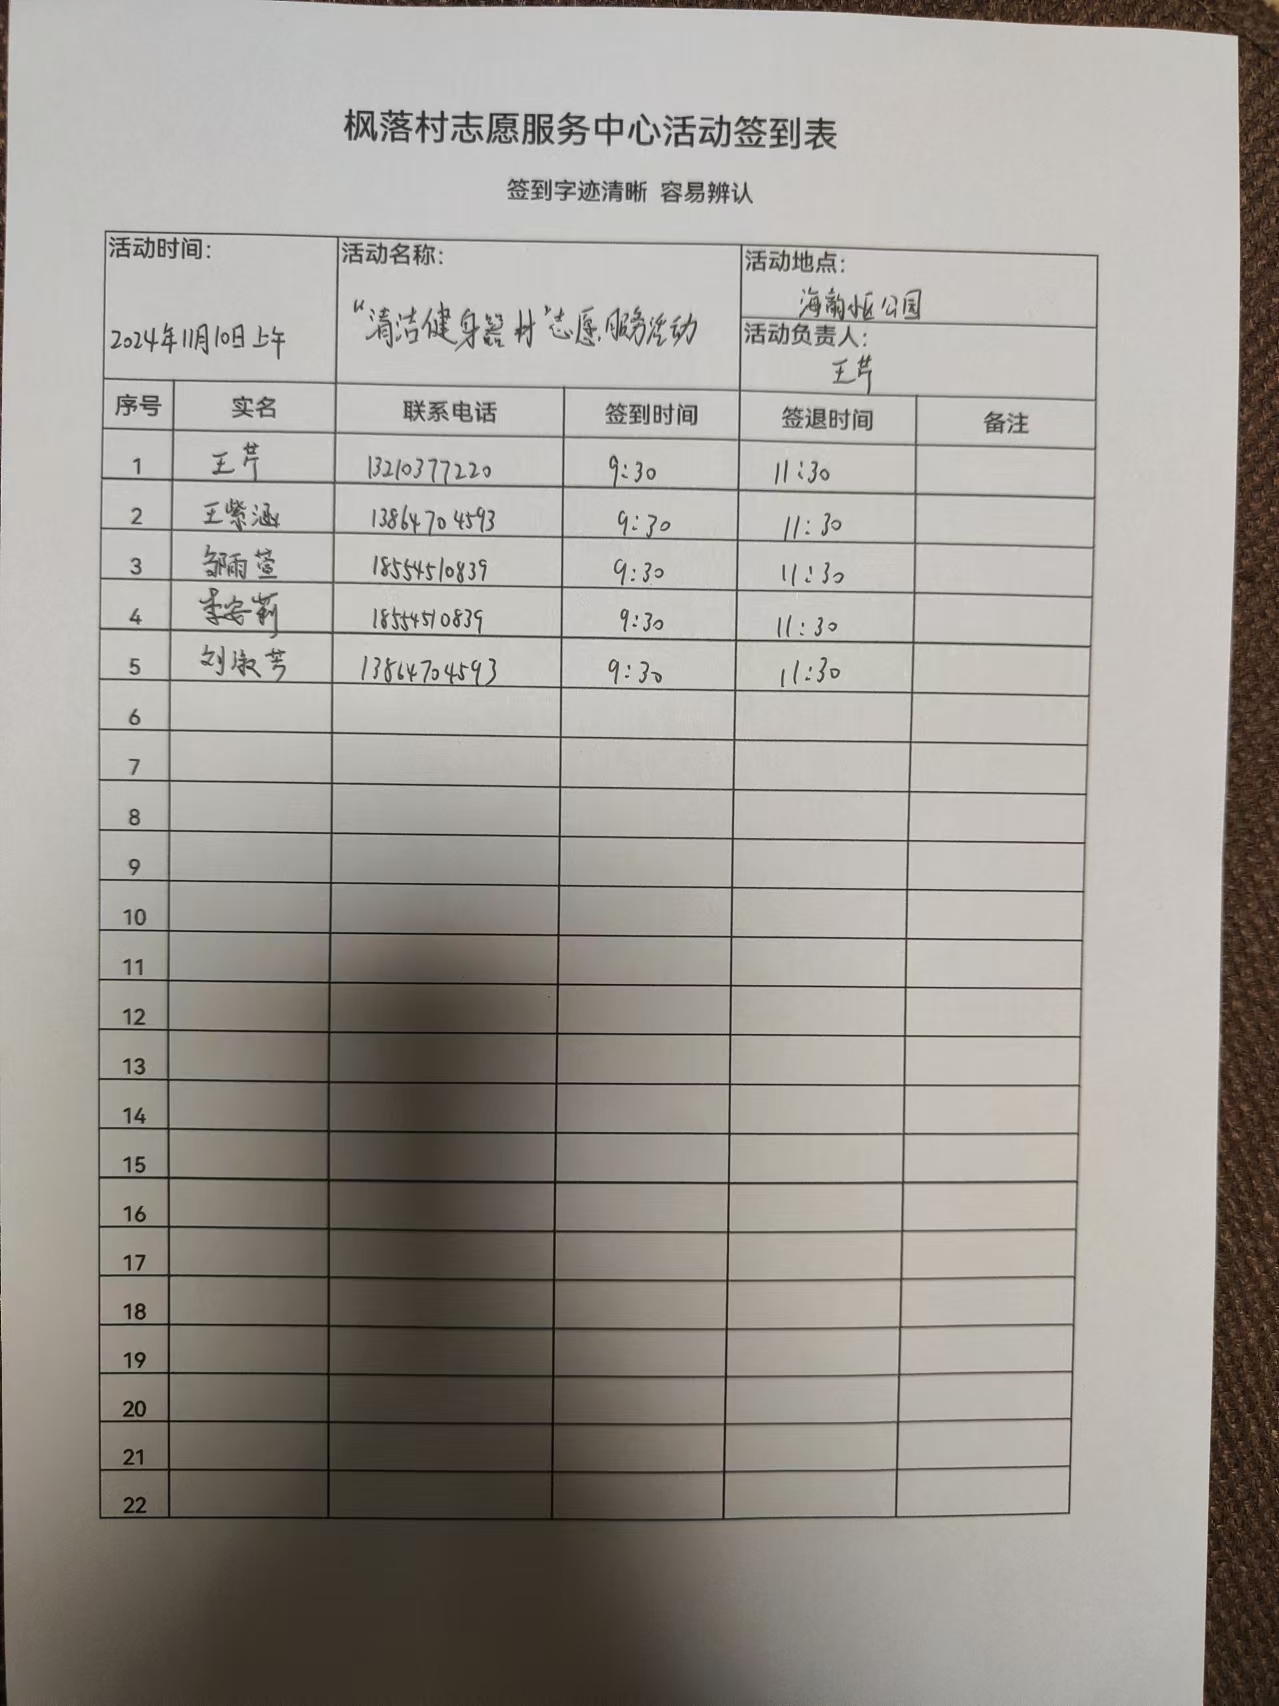 枫落村志愿服务中心活动签到表
签到字迹清晰 容易辨认
活动时间: 活动名称: 活动地点:
海韵小区公园
2024年11月10日上午 “清洁健身器材”志愿服务活动
活动负责人:
王芹
序号 实名 联系电话 签到时间 签退时间 备注
1 王芹 13210377220 9:30 11:30
2 王紫涵 13864704593 9:30 11:30
3 邹雨萱 18554510839 9:30 11:30
4 李安莉 18554510839 9:30 11:30
5 刘淑芳 13864704593 9:30 11:30
6
7
8
9
10
11
12
13
14
15
16
17
18
19
20
21
22